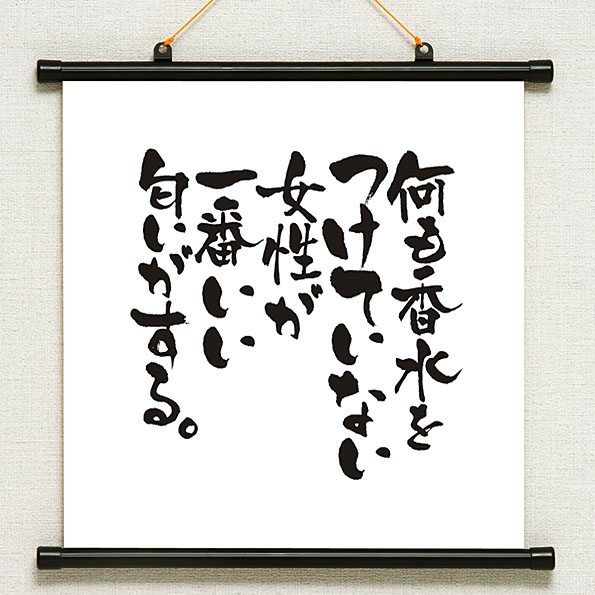 何も香水を
つけていない
女性が
一番いい
匂いがする。